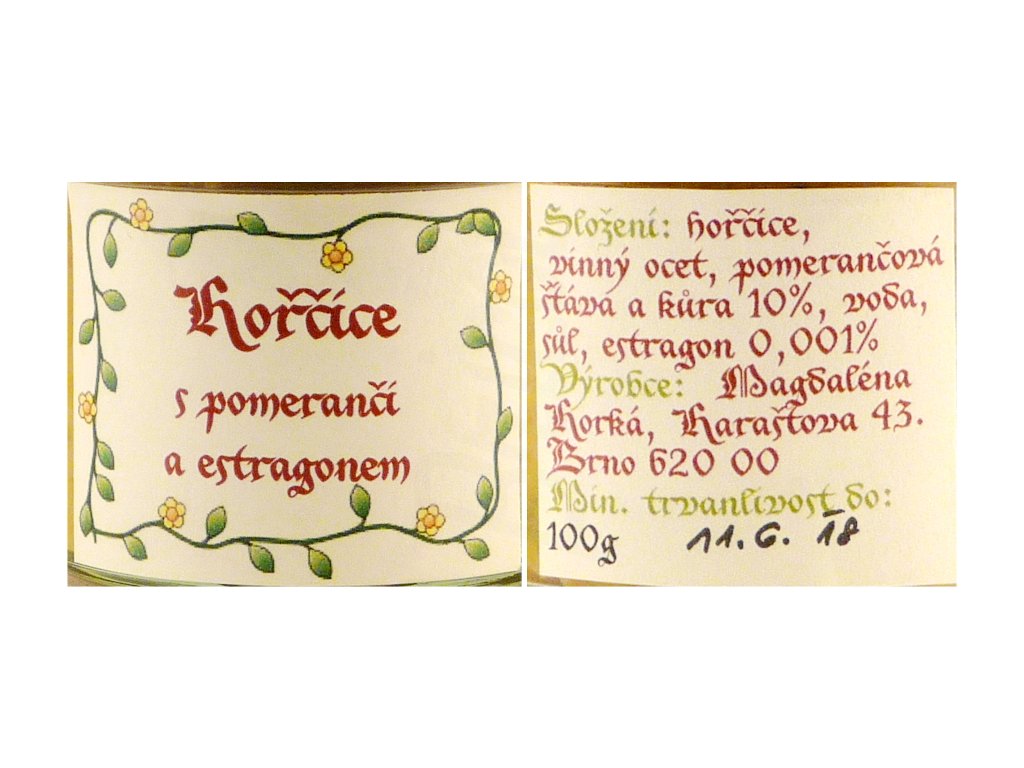 Hořčice
s pomeranči
a estragonem
Složení: hořčice,
vinný ocet, pomerančová
šťáva a kůra 10%, voda,
sůl, estragon 0,001%
Výrobce: Magdaléna
Horká, Karaštova 43.
Brno 620 00
Min. trvanlivost do:
100g 11.6. 18